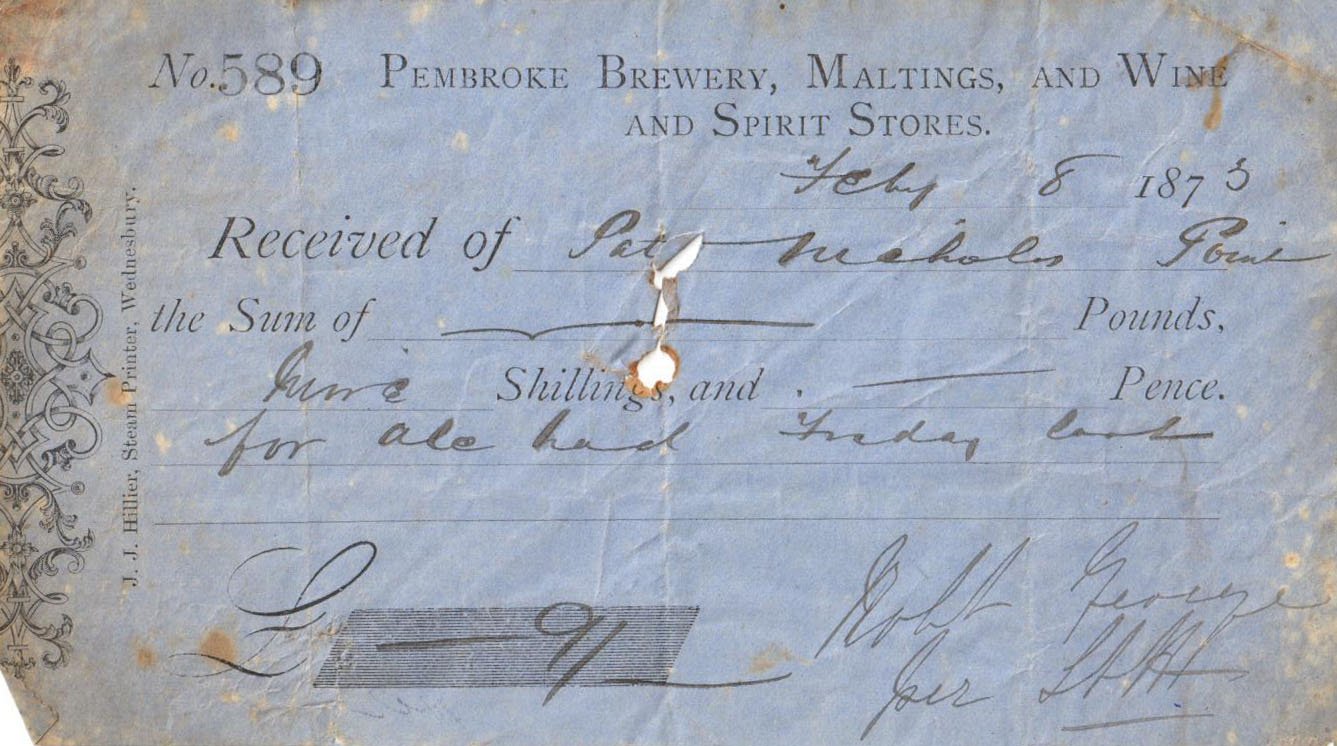 No. 589 PEMBROKE BREWERY, MALTINGS, AND WINE
AND SPIRIT STORES.
Feby 8 1873
Received of Pat Nicholas Point
the Sum of — Pounds,
Nine Shillings, and — Pence.
for Ale had Friday last
£ — 9/
Robt George
per
J. J. Hillier, Steam Printer, Wednesbury.